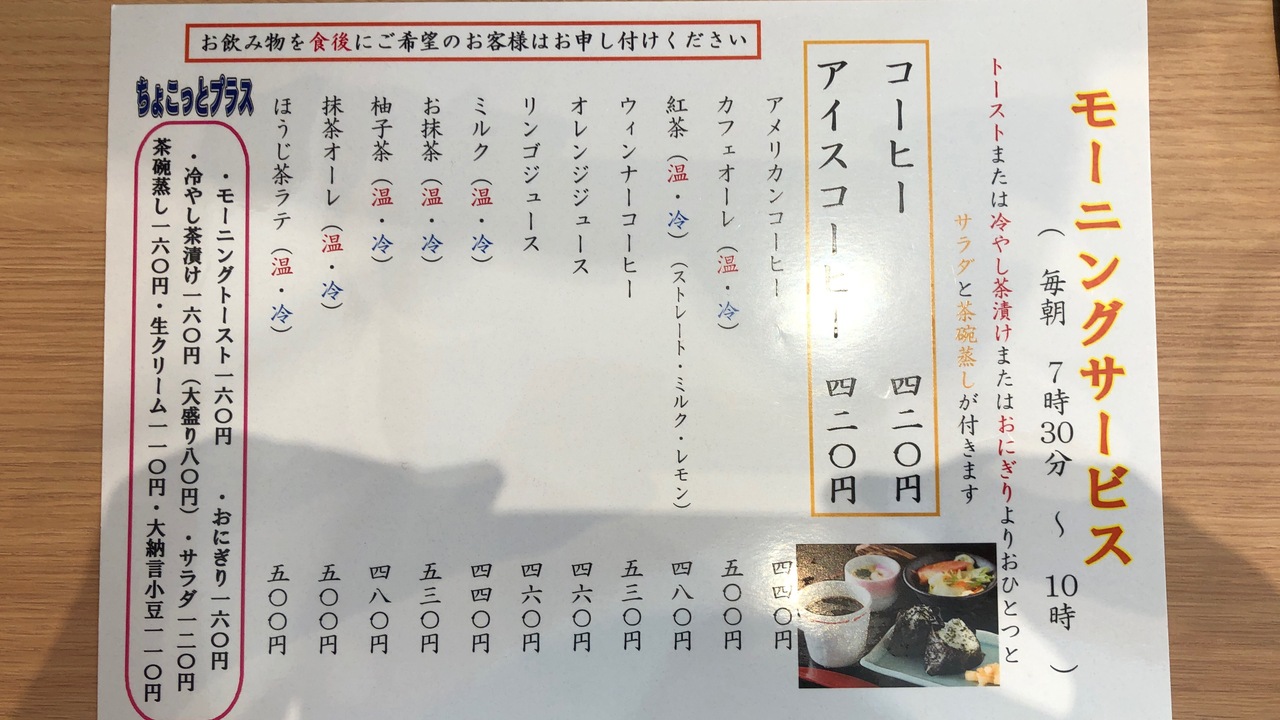 モーニングサービス
（ 毎朝 7時30分 〜 10時 ）
トーストまたは冷やし茶漬けまたはおにぎりよりおひとつと
サラダと茶碗蒸しが付きます
コーヒー 四二〇円
アイスコーヒー 四二〇円
アメリカンコーヒー 四四〇円
カフェオーレ（温・冷） 五〇〇円
紅茶（温・冷）（ストレート・ミルク・レモン） 四八〇円
ウィンナーコーヒー 五三〇円
オレンジジュース 四六〇円
リンゴジュース 四六〇円
ミルク（温・冷） 四四〇円
お抹茶（温・冷） 五三〇円
柚子茶（温・冷） 四八〇円
抹茶オーレ（温・冷） 五〇〇円
ほうじ茶ラテ（温・冷） 五〇〇円
お飲み物を食後にご希望のお客様はお申し付けください
ちょこっとプラス
・モーニングトースト一六〇円 ・おにぎり一六〇円
・冷やし茶漬け一六〇円（大盛り八〇円）・サラダ一二〇円
茶碗蒸し一六〇円・生クリーム一一〇円・大納言小豆一一〇円